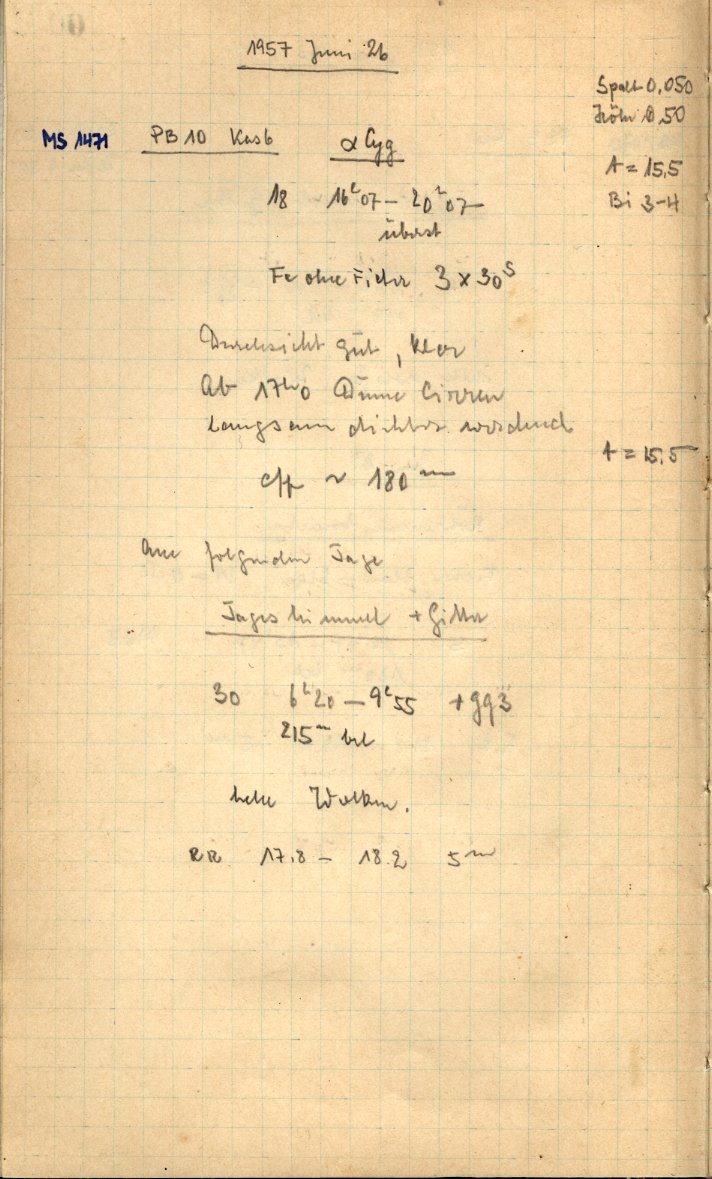 1957 Juni 26
Spalt 0,050
Höhe 0,50
MS 1471 PB10 Kas6 α Cyg
A = 15,5
Bi 3-4
18 16ʰ07 – 20ʰ07
überst
Fe ohne Filter 3 × 30ˢ
Durchsicht gut, klar
Ab 17ʰ10 Dünne Cirren
langsam dichter werdend
A = 15,5
eff ~ 180ᵐ
Am folgenden Tage
Tageshimmel + Gitter
30 6ʰ20 – 9ʰ55 + gg3
215ᵐ bel
helle Wolken.
RR 17.8 – 18.2 5ᵐ